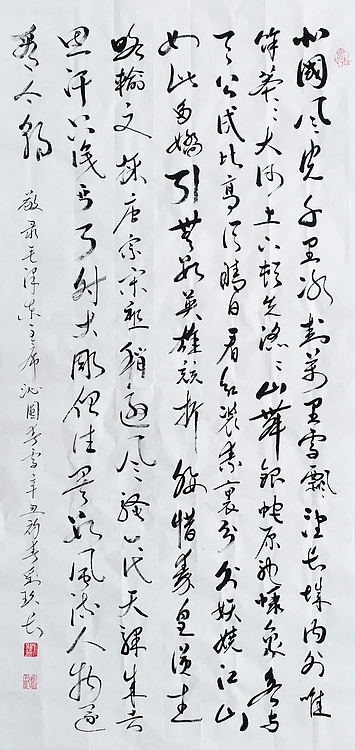 北國风光千里冰封萬里雪飄望长城内外唯
馀莽〻大河上下顿失滔〻山舞銀蛇原驰蠟象欲与
天公试比高须晴日看红装素裹分外妖娆江山
如此多嬌引無數英雄競折腰惜秦皇漢武
略输文採唐宗宋祖稍遜风騷一代天驕成吉
思汗只识弯弓射大雕俱往矣數風流人物还
看今朝
敬录毛泽东主席沁園春雪辛丑初春